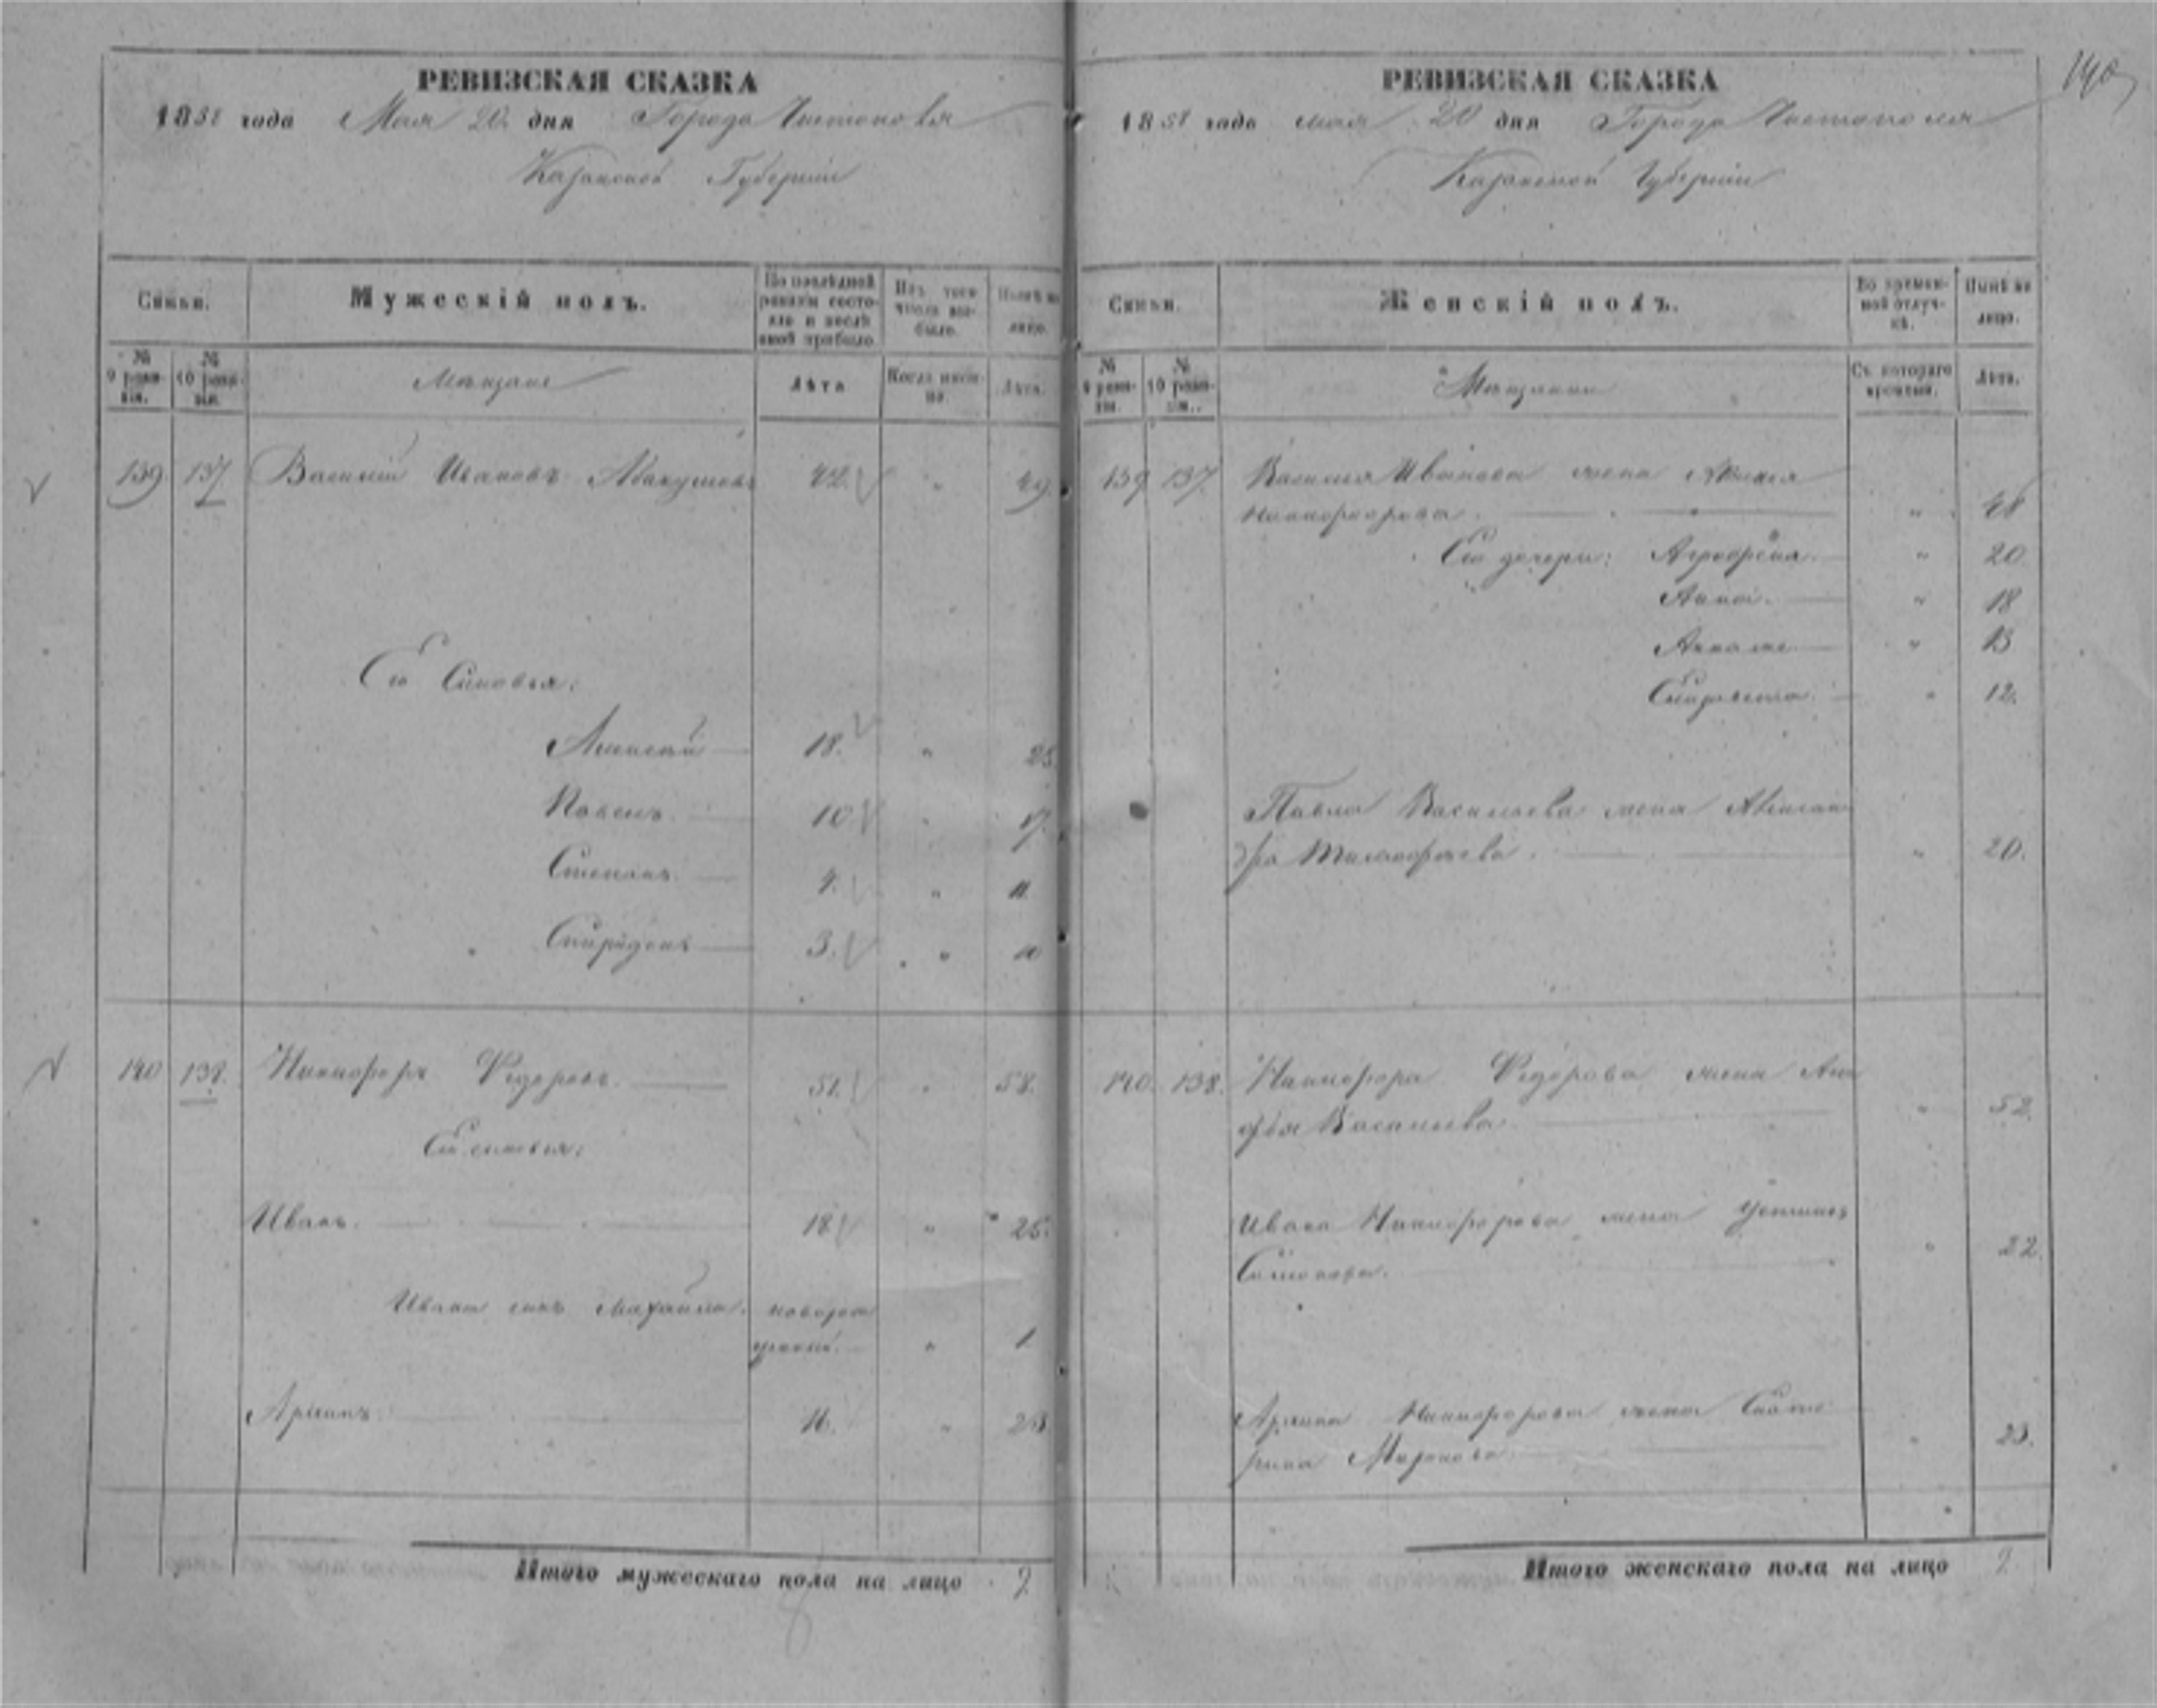 140
РЕВИЗСКАЯ СКАЗКА
1858 года Мая 20 дня Города Чистополя
Казанской Губернии
Семьи.
Мужескій полъ.
По послѣдней ревизіи состояло и послѣ оной прибыло
Изъ того числа выбыло.
Нынѣ на лицо.
№ 9 ревизіи.
№ 10 ревизіи.
Мѣщане
Лѣта
Когда именно.
Лѣта.
139 137 Василій Ивановъ Абакумовъ 42 " 49
Его Сыновья:
Алексѣй 18. " 25
Павелъ 10 " 17.
Степанъ 4. " 11
Спиридонъ 3. " 10
140 138. Никифоръ Ѳедоровъ. 51. " 58.
Его сыновья:
Иванъ. 18 " 25.
Ивана сынъ Михайла. новорож
денный. " 1
Архипъ 16. " 23
Итого мужескаго пола на лицо 9
РЕВИЗСКАЯ СКАЗКА
1858 года мая 20 дня Города Чистополя
Казанской Губерніи
Семьи.
Женскій полъ.
Во временной отлучкѣ.
Нынѣ на лицо.
№ 9 ревизіи.
№ 10 ревизіи.
Мѣщанки
Съ котораго времени.
Лѣта.
139 137. Василья Иванова жена
Никифорова. " 48
Его дочери: Аграфена. " 20
Анна. " 18
" 13
" 12.
Павла Васильева жена Алексан
дра " 20.
140. 138. Никифора Ѳедорова жена Ана
Васильева. " 52.
Ивана Никифорова жена Устинья
Симонова. " 22.
Архипа Никифорова жена Кате
рина Миронова " 23.
Итого женскаго пола на лицо 9